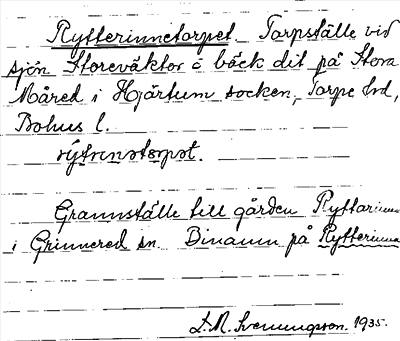 Rytterinnetorpet. Torpställe vid
sjön Storeväktor o bäck dit på Stora
Måred i Hjärtum socken, Torpe hd,
Bohus l.
rýtrinotorpot.
Grannställe till gården Ryttarinne
i Grinnered sn. Binamn på Rytterinne
S.R. Svenungsson. 1935.